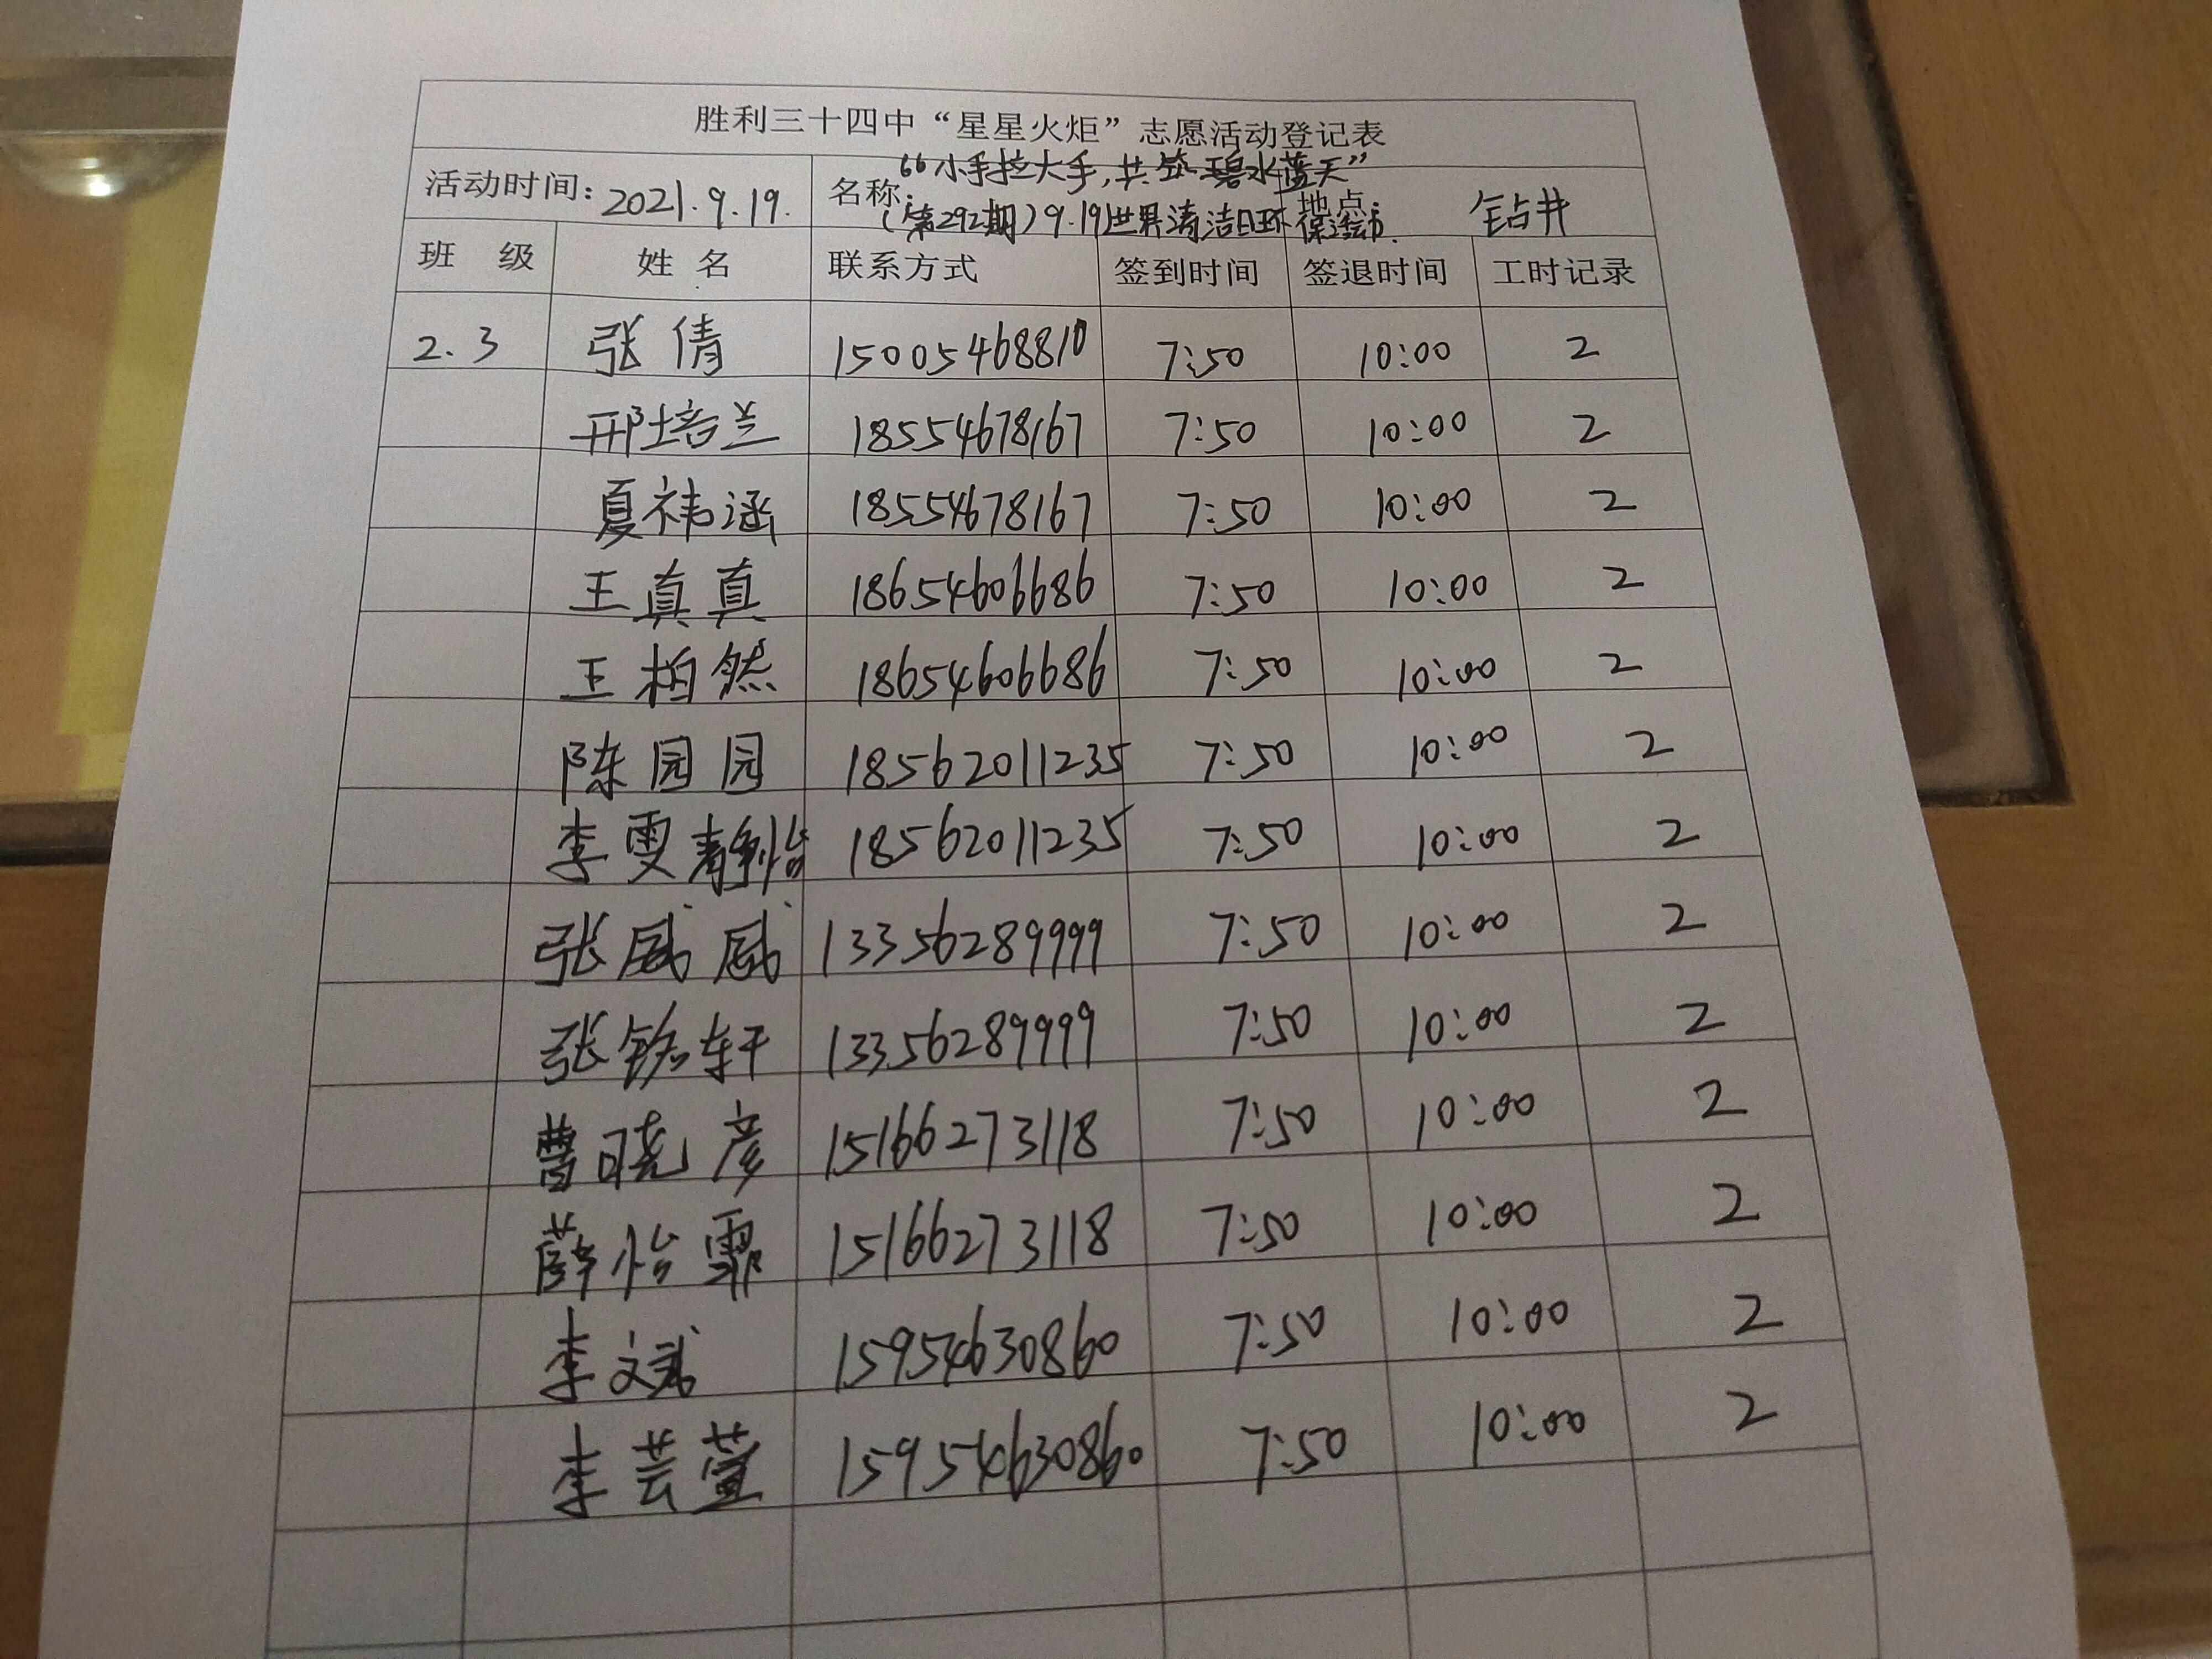 胜利三十四中“星星火炬”志愿活动登记表
活动时间: 2021.9.19. 名称: “小手拉大手,共筑碧水蓝天” 地点: 钻井
(第292期)9.19世界清洁日环保活动.
班 级 姓 名 联系方式 签到时间 签退时间 工时记录
2.3 张倩 15005468810 7:50 10:00 2
邢培兰 18554678167 7:50 10:00 2
夏祎涵 18554678167 7:50 10:00 2
王真真 18654606686 7:50 10:00 2
王柏然 18654606686 7:50 10:00 2
陈园园 18562011235 7:50 10:00 2
李雯静怡 18562011235 7:50 10:00 2
张威威 13356289999 7:50 10:00 2
张铭轩 13356289999 7:50 10:00 2
曹晓彦 15166273118 7:50 10:00 2
薛怡霏 15166273118 7:50 10:00 2
李文斌 15954630860 7:50 10:00 2
李芸萱 15954630860 7:50 10:00 2